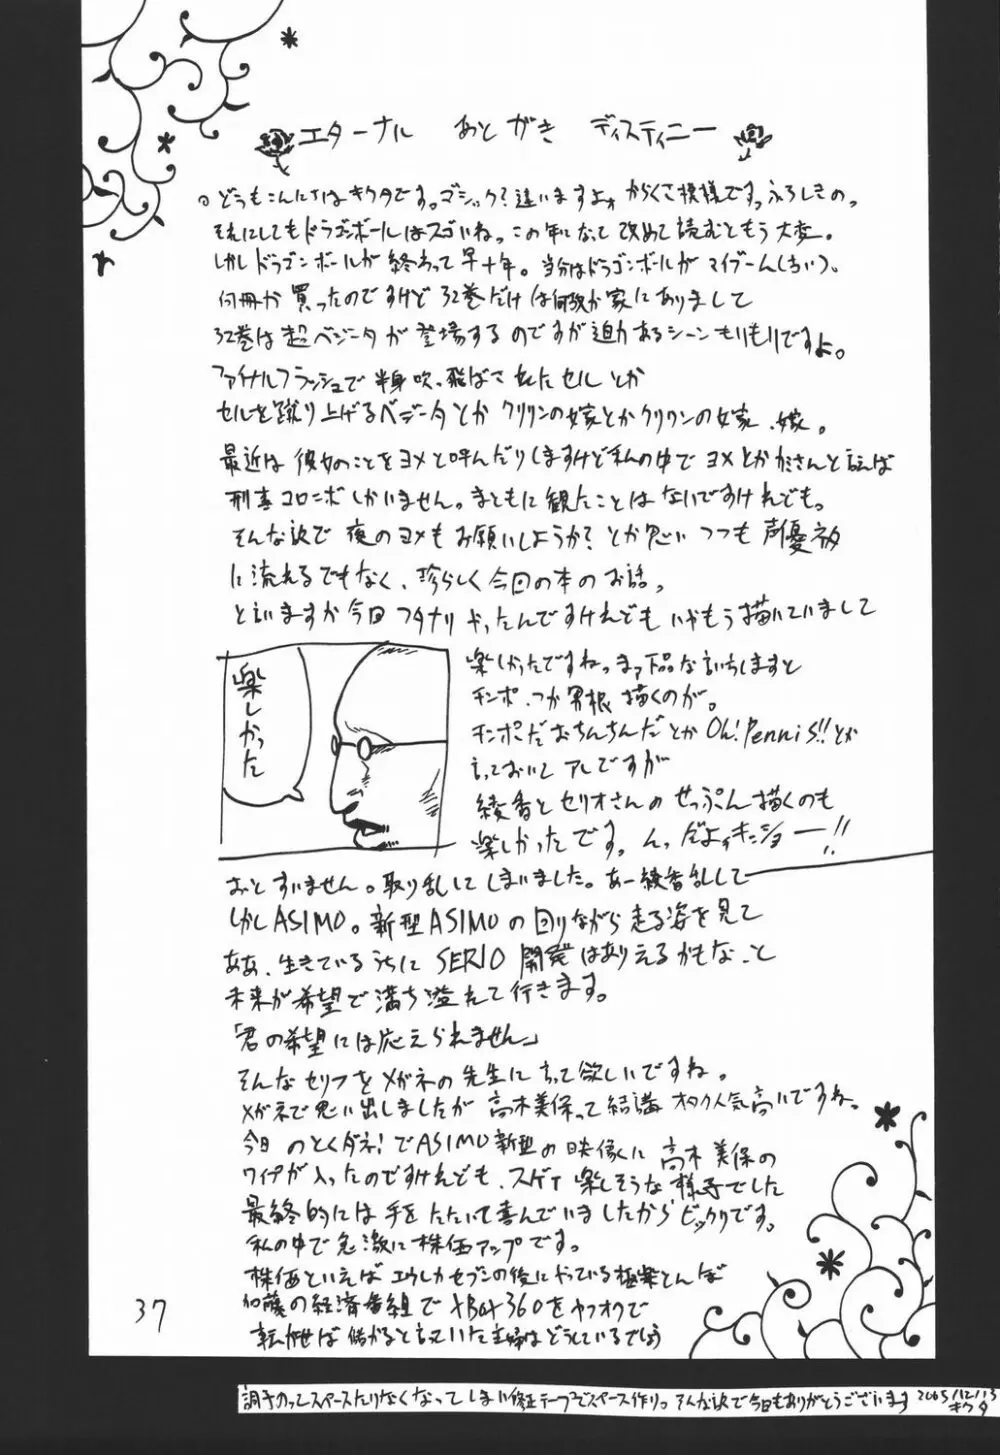 エターナル あとがき ディスティニー
。どうもこんにちはキクタです。ゴシック?違いますよォからくさ模様です。ふろしきの。
それにしてもドラゴンボールはスゴいね。この年になって改めて読むともう大変。
しかしドラゴンボールが終わって早十年。当分はドラゴンボールがマイブーム(古い)。
何冊か買ったのですけど32巻だけは何故か家にありまして
32巻は超ベジータが登場するのですが迫力あるシーンもりもりですよ。
ファイナルフラッシュで半身吹っ飛ばされたセルとか
セルを蹴り上げるベジータとかクリリンの嫁とかクリリンの嫁、嫁。
最近は彼女のことをヨメと呼んだりしますけど私の中でヨメとかカミさんと言えば
刑事コロンボしかいません。まともに観たことはないですけれども。
そんな訳で夜のヨメもお願いしようか?とか思いつつも声優ネタ
に流れるでもなく、珍らしく今回の本のお話。
と言いますか今回フタナリやったんですけれどもいやもう描いていまして
楽しかった
楽しかったですねっまァ下品な言いちしますと
チンポ、つか男根描くのが。
チンポだおちんちんだとかOh!PenniS!!とか
言っておいてアレですが
綾香とセリオさんのせっぷん描くのも
楽しかったです。んっだよィキンショー!!
おとすいません。取り乱してしまいました。あー綾香乱して
しかしASIMO。新型ASIMOの回りながら走る姿を見て
ああ、生きているうちにSERIO開発はありえるかもな、と
未来が希望で満ち溢れて行きます。
「君の希望には応えられません」
そんなセリフをメガネの先生に言って欲しいですね。
メガネで思い出しましたが高木美保って結構オタク人気高いですね。
今日のとくダネ!でASIMO新型の映像に高木美保の
ワイプが入ったのですけれども、スゲェ楽しそうな様子でした
最終的には手をたたいて喜んでいましたからビックリです。
私の中で急激に株価アップです。
株価といえばエウレカセブンの後にやっている極楽とんぼ
加藤の経済番組でXBOX360をヤフオクで
転がせば儲かると言っていた主婦はどうしているでしょう
37
調子のってスペースたりなくなってしまい修正テープでスペース作り。そんな訳で今日もありがとうございます 2005/12/13 キクタ